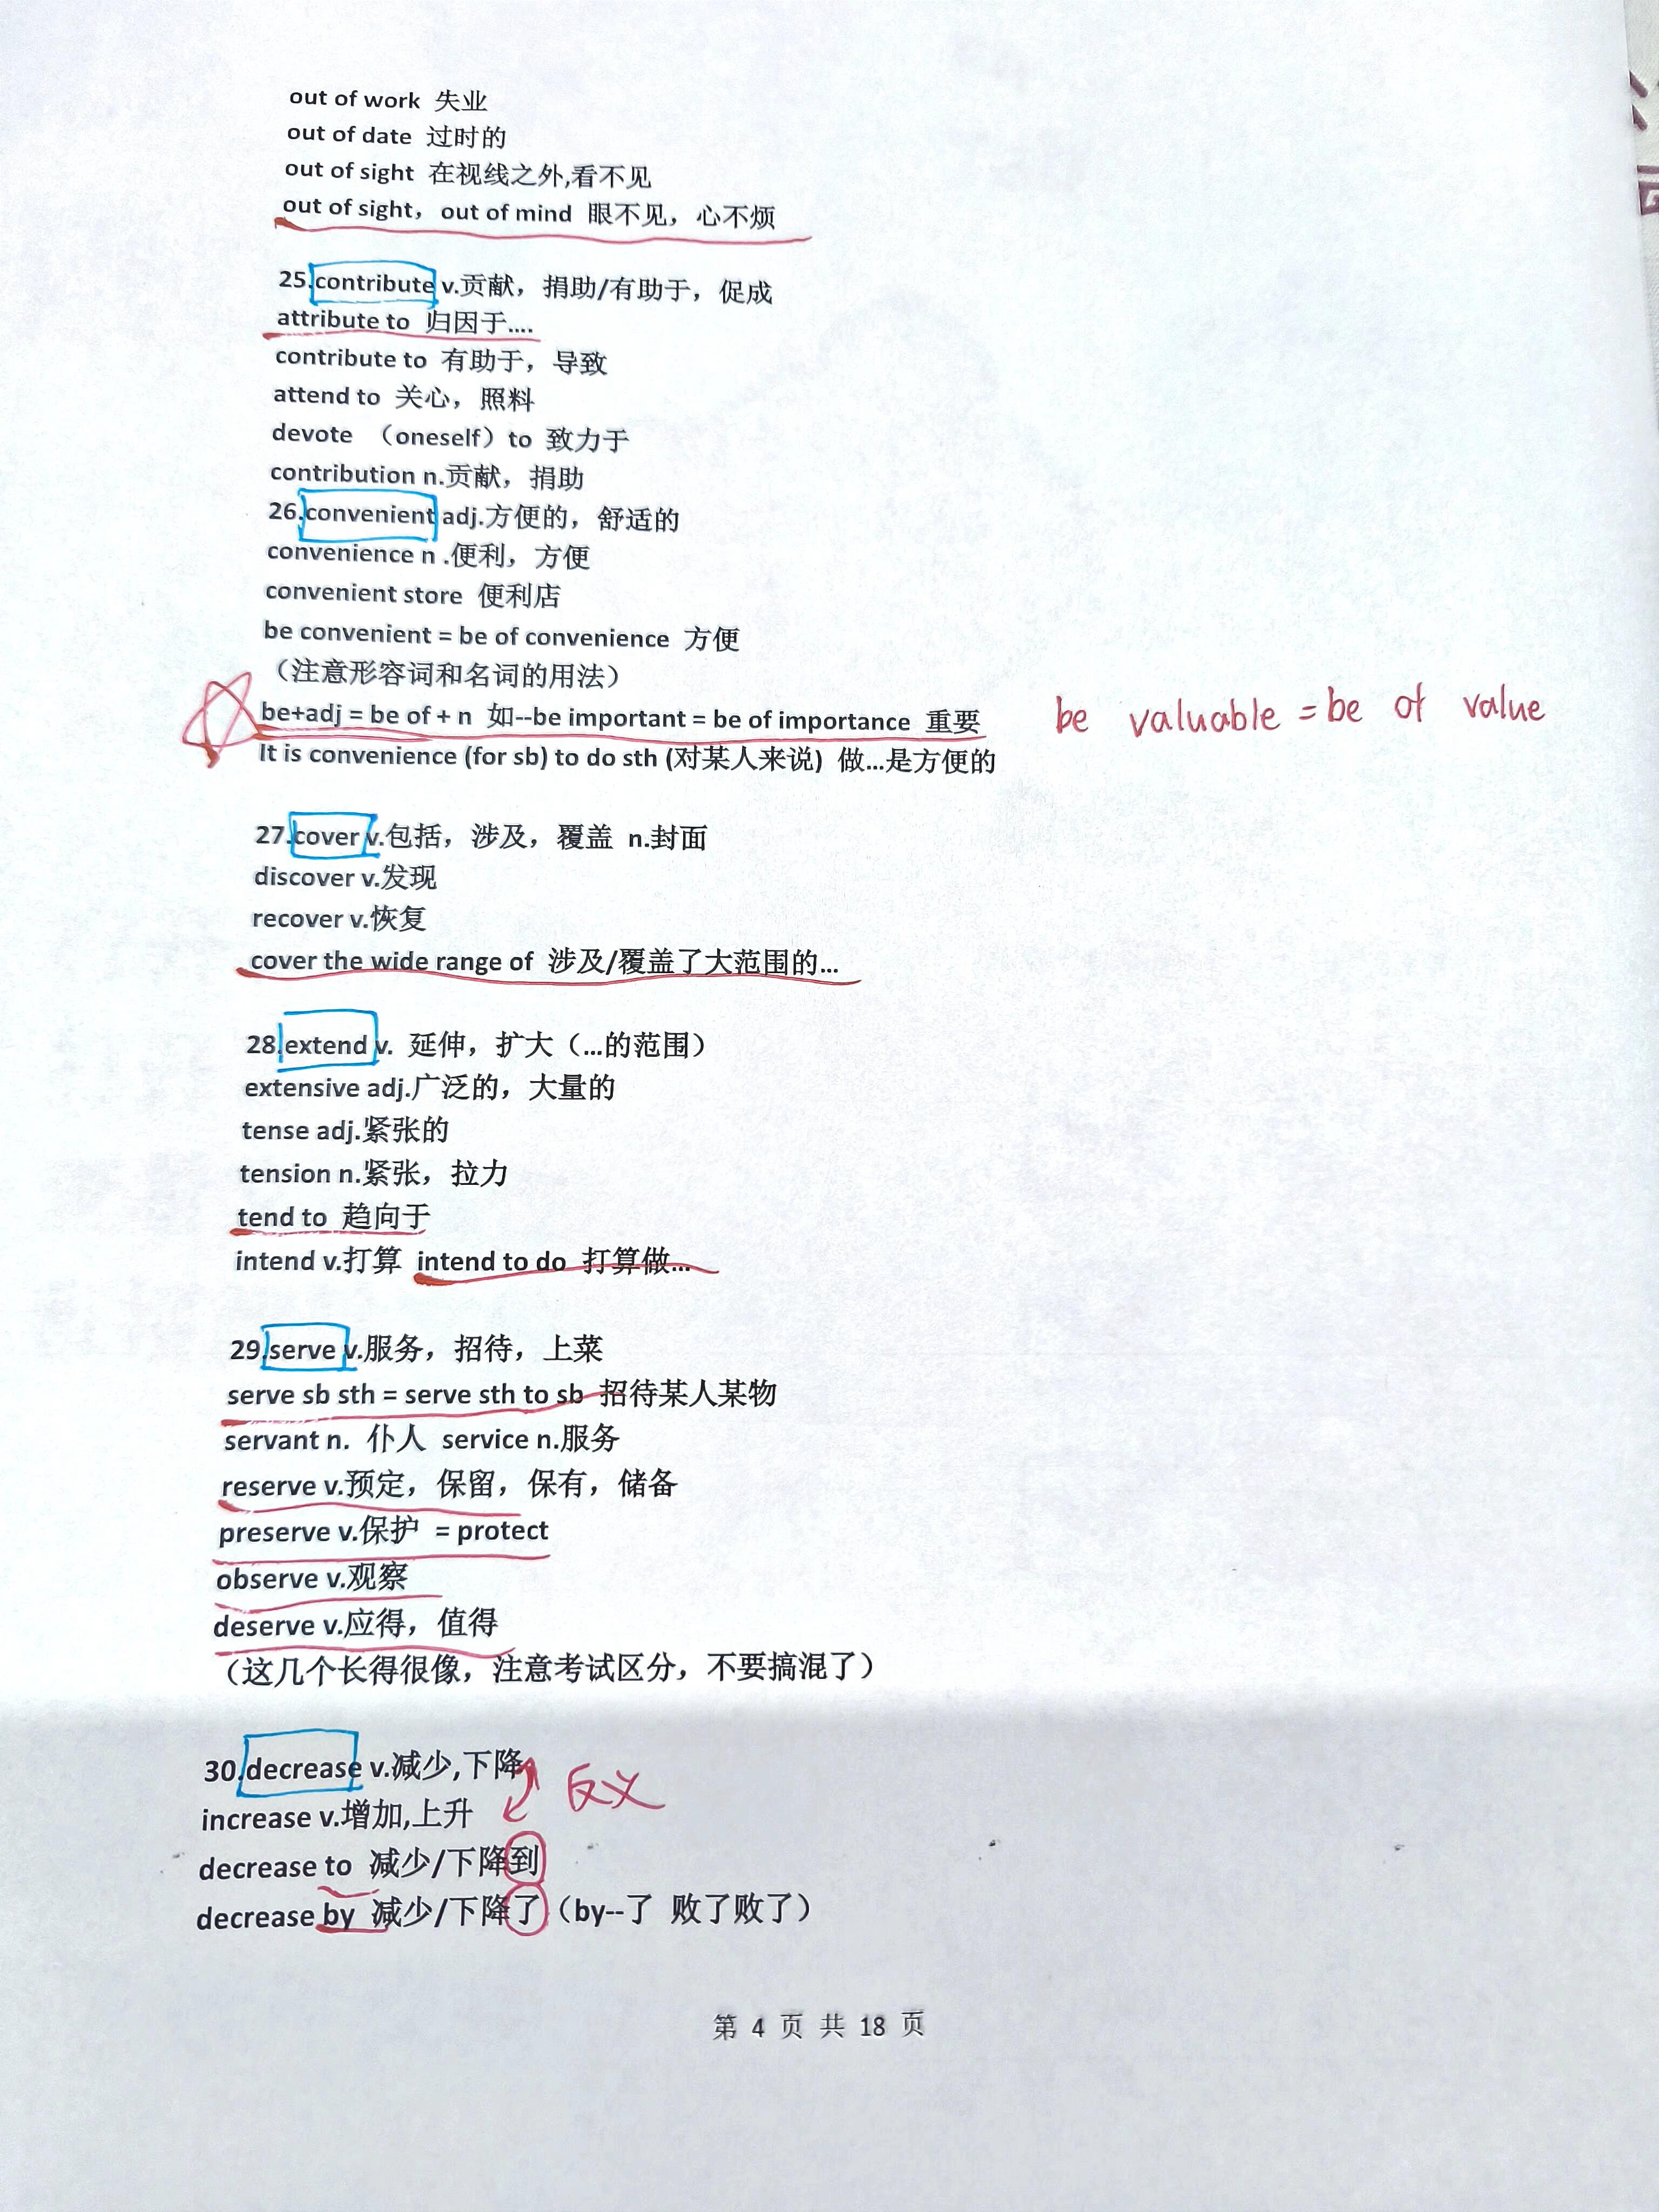 out of work 失业
out of date 过时的
out of sight 在视线之外,看不见
out of sight，out of mind 眼不见，心不烦
25.contribute v.贡献，捐助/有助于，促成
attribute to 归因于....
contribute to 有助于，导致
attend to 关心，照料
devote （oneself）to 致力于
contribution n.贡献，捐助
26.convenient adj.方便的，舒适的
convenience n .便利，方便
convenient store 便利店
be convenient = be of convenience 方便
（注意形容词和名词的用法）
be+adj = be of + n 如--be important = be of importance 重要 be valuable = be of value
It is convenience (for sb) to do sth (对某人来说) 做...是方便的
27.cover v.包括，涉及，覆盖 n.封面
discover v.发现
recover v.恢复
cover the wide range of 涉及/覆盖了大范围的...
28.extend v. 延伸，扩大（...的范围）
extensive adj.广泛的，大量的
tense adj.紧张的
tension n.紧张，拉力
tend to 趋向于
intend v.打算 intend to do 打算做...
29.serve v.服务，招待，上菜
serve sb sth = serve sth to sb 招待某人某物
servant n. 仆人 service n.服务
reserve v.预定，保留，保有，储备
preserve v.保护 = protect
observe v.观察
deserve v.应得，值得
（这几个长得很像，注意考试区分，不要搞混了）
30.decrease v.减少,下降
反义
increase v.增加,上升
decrease to 减少/下降到
decrease by 减少/下降了（by--了 败了败了）
第 4 页 共 18 页